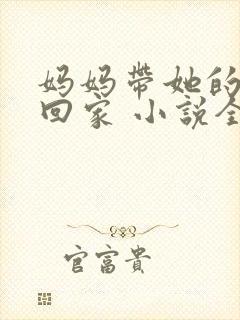 妈妈带她的
回家 小说全
官富贵